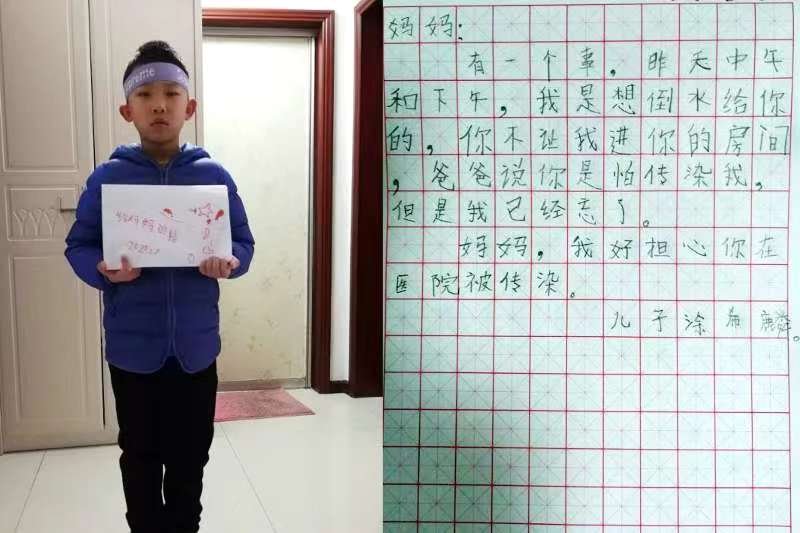 preme
给妈妈的信
妈妈：
有一个事，昨天中午
和下午，我是想倒水给你
的，你不让我进你的房间
，爸爸说你是怕传染我，
但是我已经忘了。
妈妈，我好担心你在
医院被传染。
儿子涂希麟。